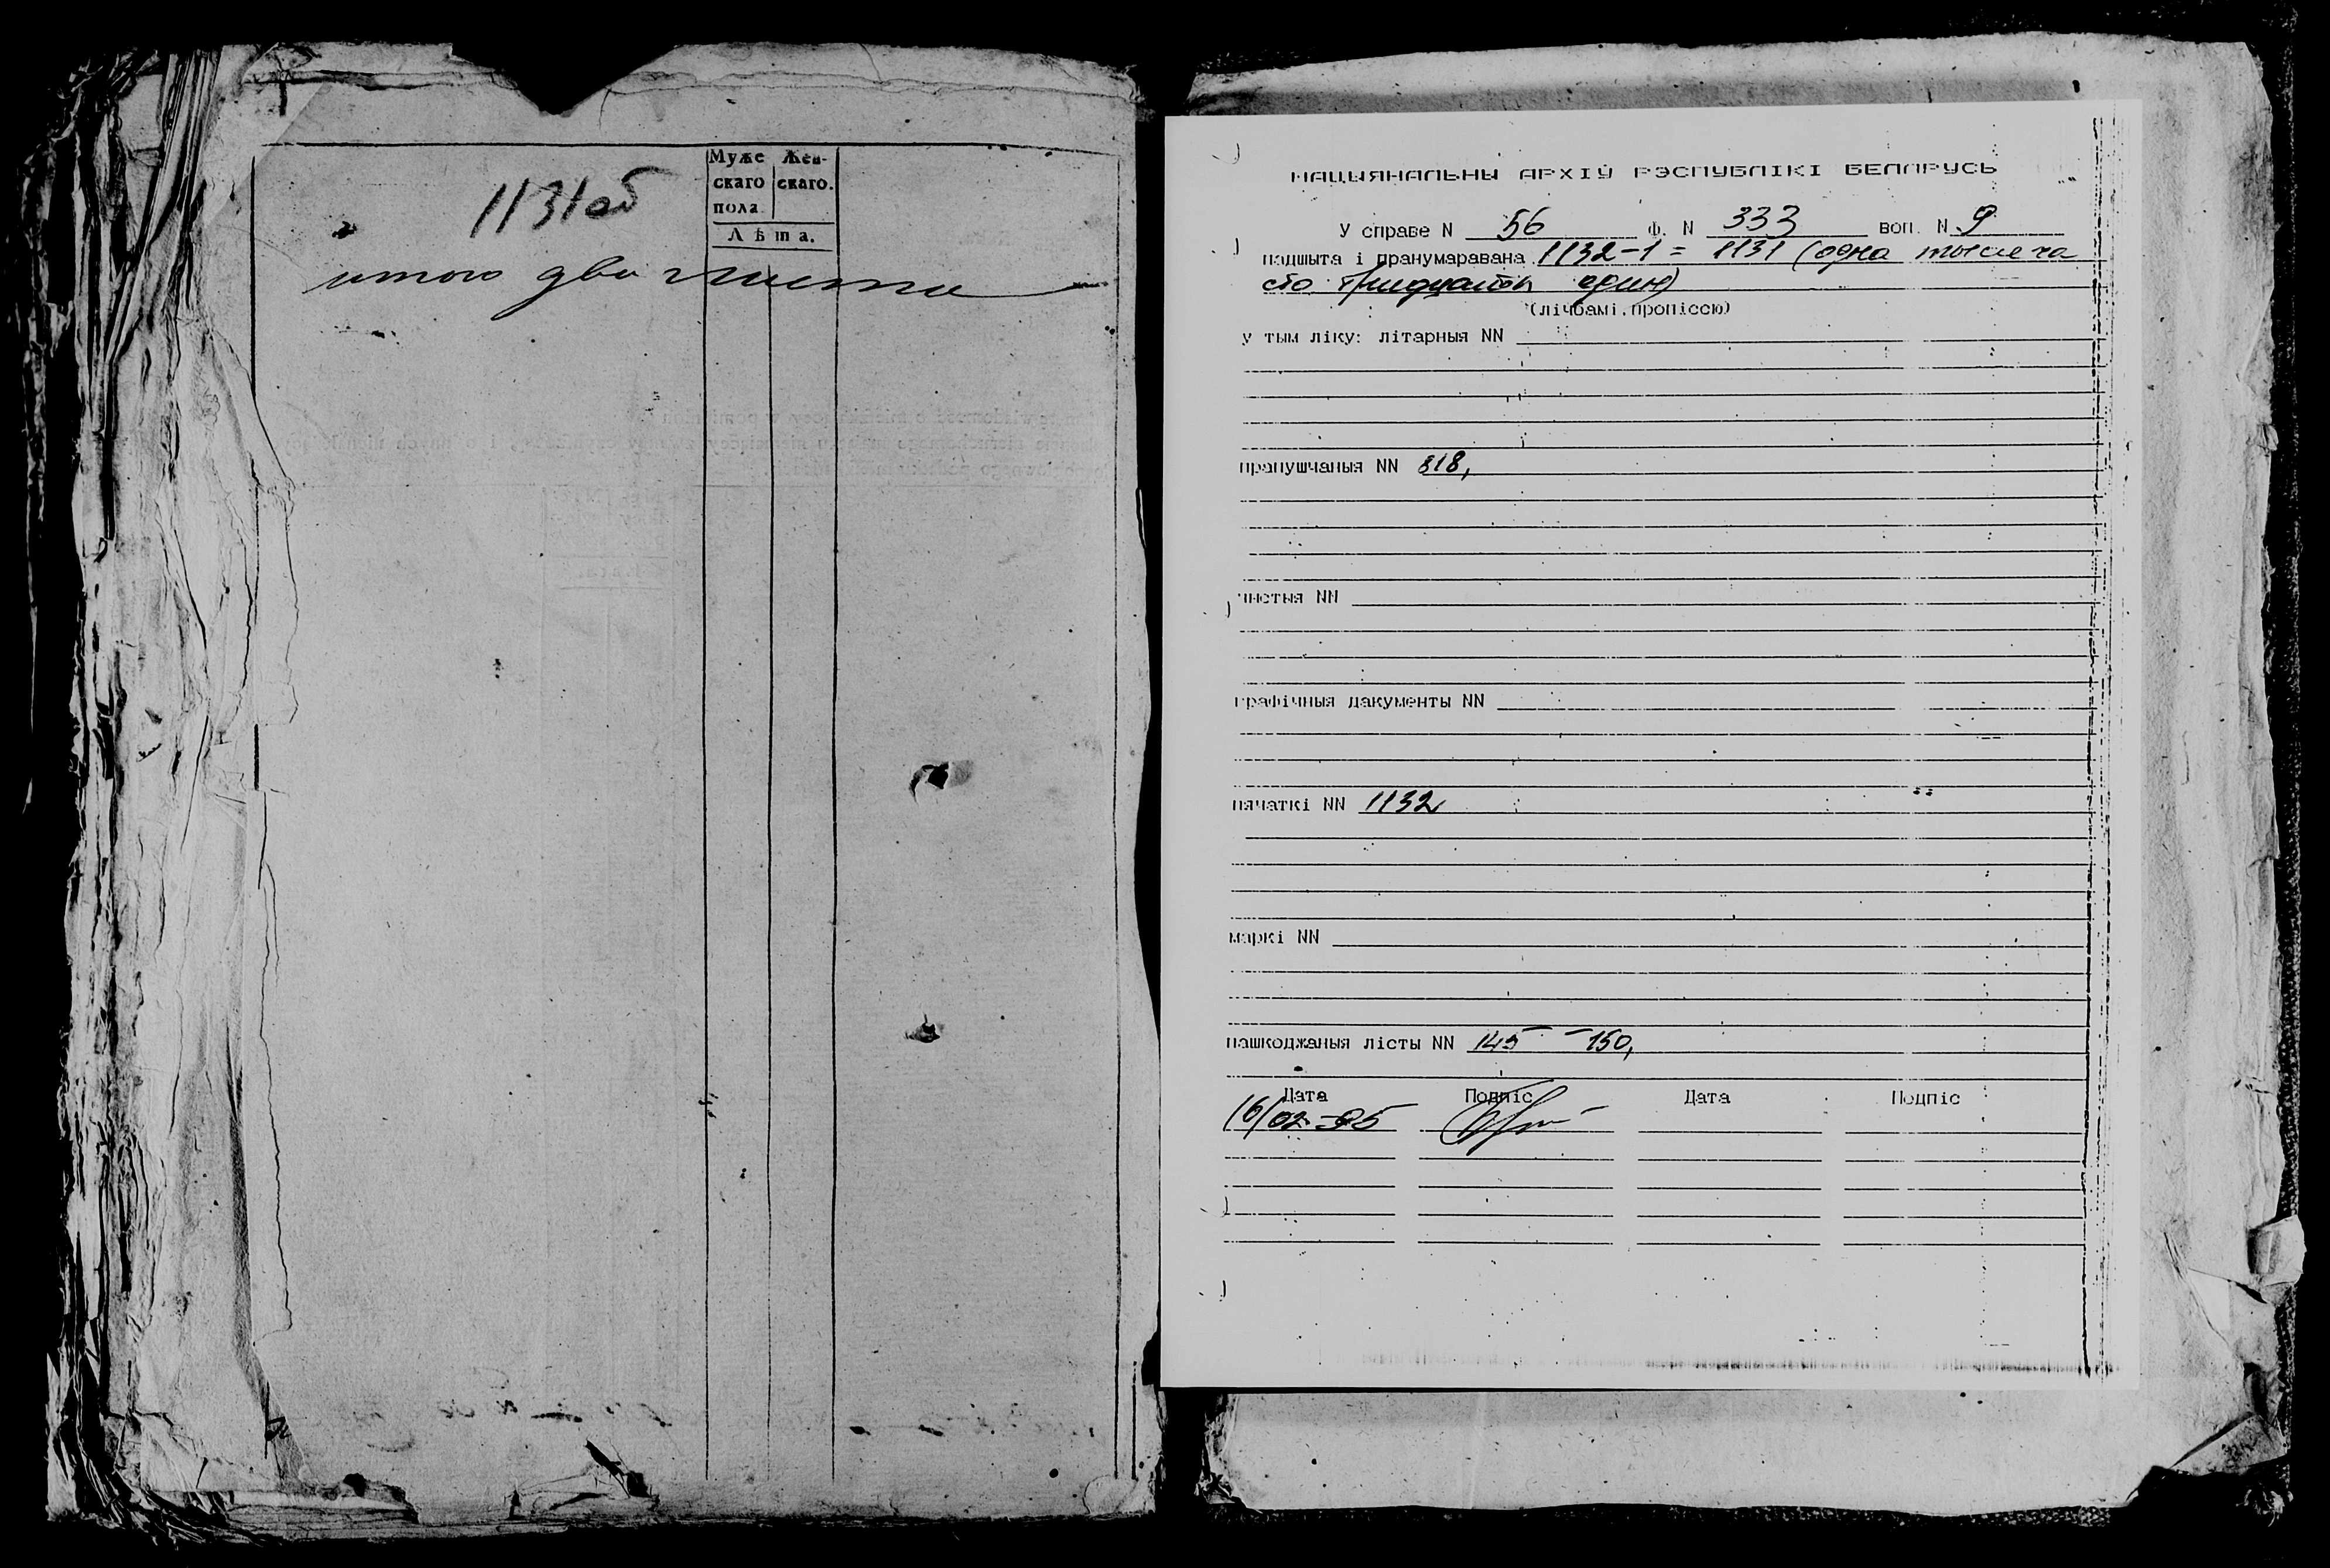 1131об
Муже Жен-
скаго скаго.
пола
Лѣта.
итого два листа
НАЦЫЯНАЛЬНЫ АРХІЎ РЭСПУБЛІКІ БЕЛАРУСЬ
У справе N 56 Ф. N 333 воп. N 9
падшыта і пранумаравана 1132-1 = 1131 (одна тысяча
сто тридцать один)
(лічбамі, пропіссю)
у тым ліку: літарныя NN
прапушчаныя NN 818,
чыстыя NN
графічныя дакументы NN
пячаткі NN 1132
маркі NN
пашкоджаныя лісты NN 145 - 150,
Дата Подпіс Дата Подпіс
16/02-95